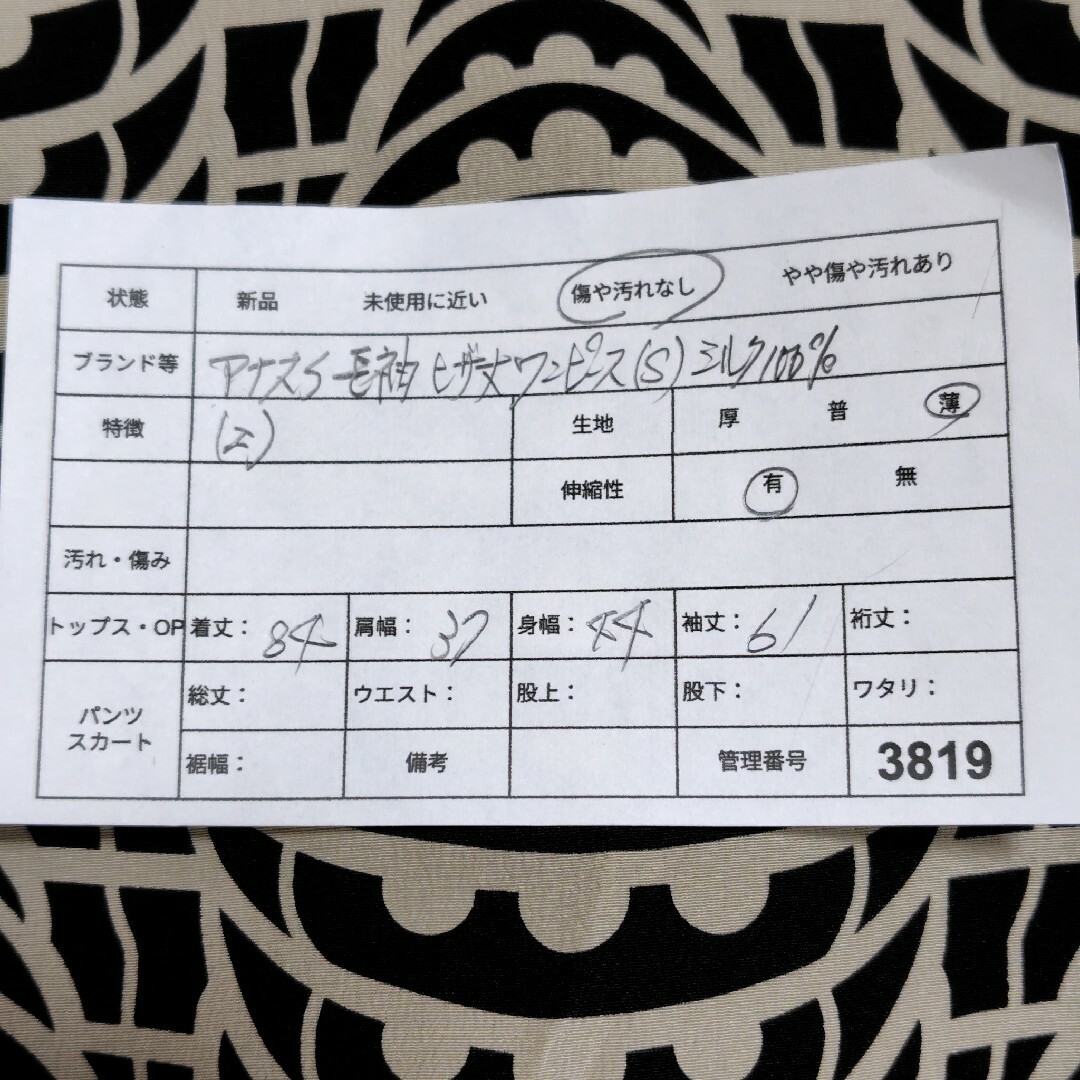 状態 新品 未使用に近い 傷や汚れなし やや傷や汚れあり
ブランド等 アナスイ 長袖 ヒザ丈ワンピース(S) シルク100%
特徴 生地 厚 普 薄
伸縮性 有 無
汚れ・傷み
トップス・OP 着丈: 84 肩幅: 37 身幅: 44 袖丈: 61 裄丈:
パンツ スカート 総丈: ウエスト: 股上: 股下: ワタリ:
裾幅: 備考 管理番号 3819